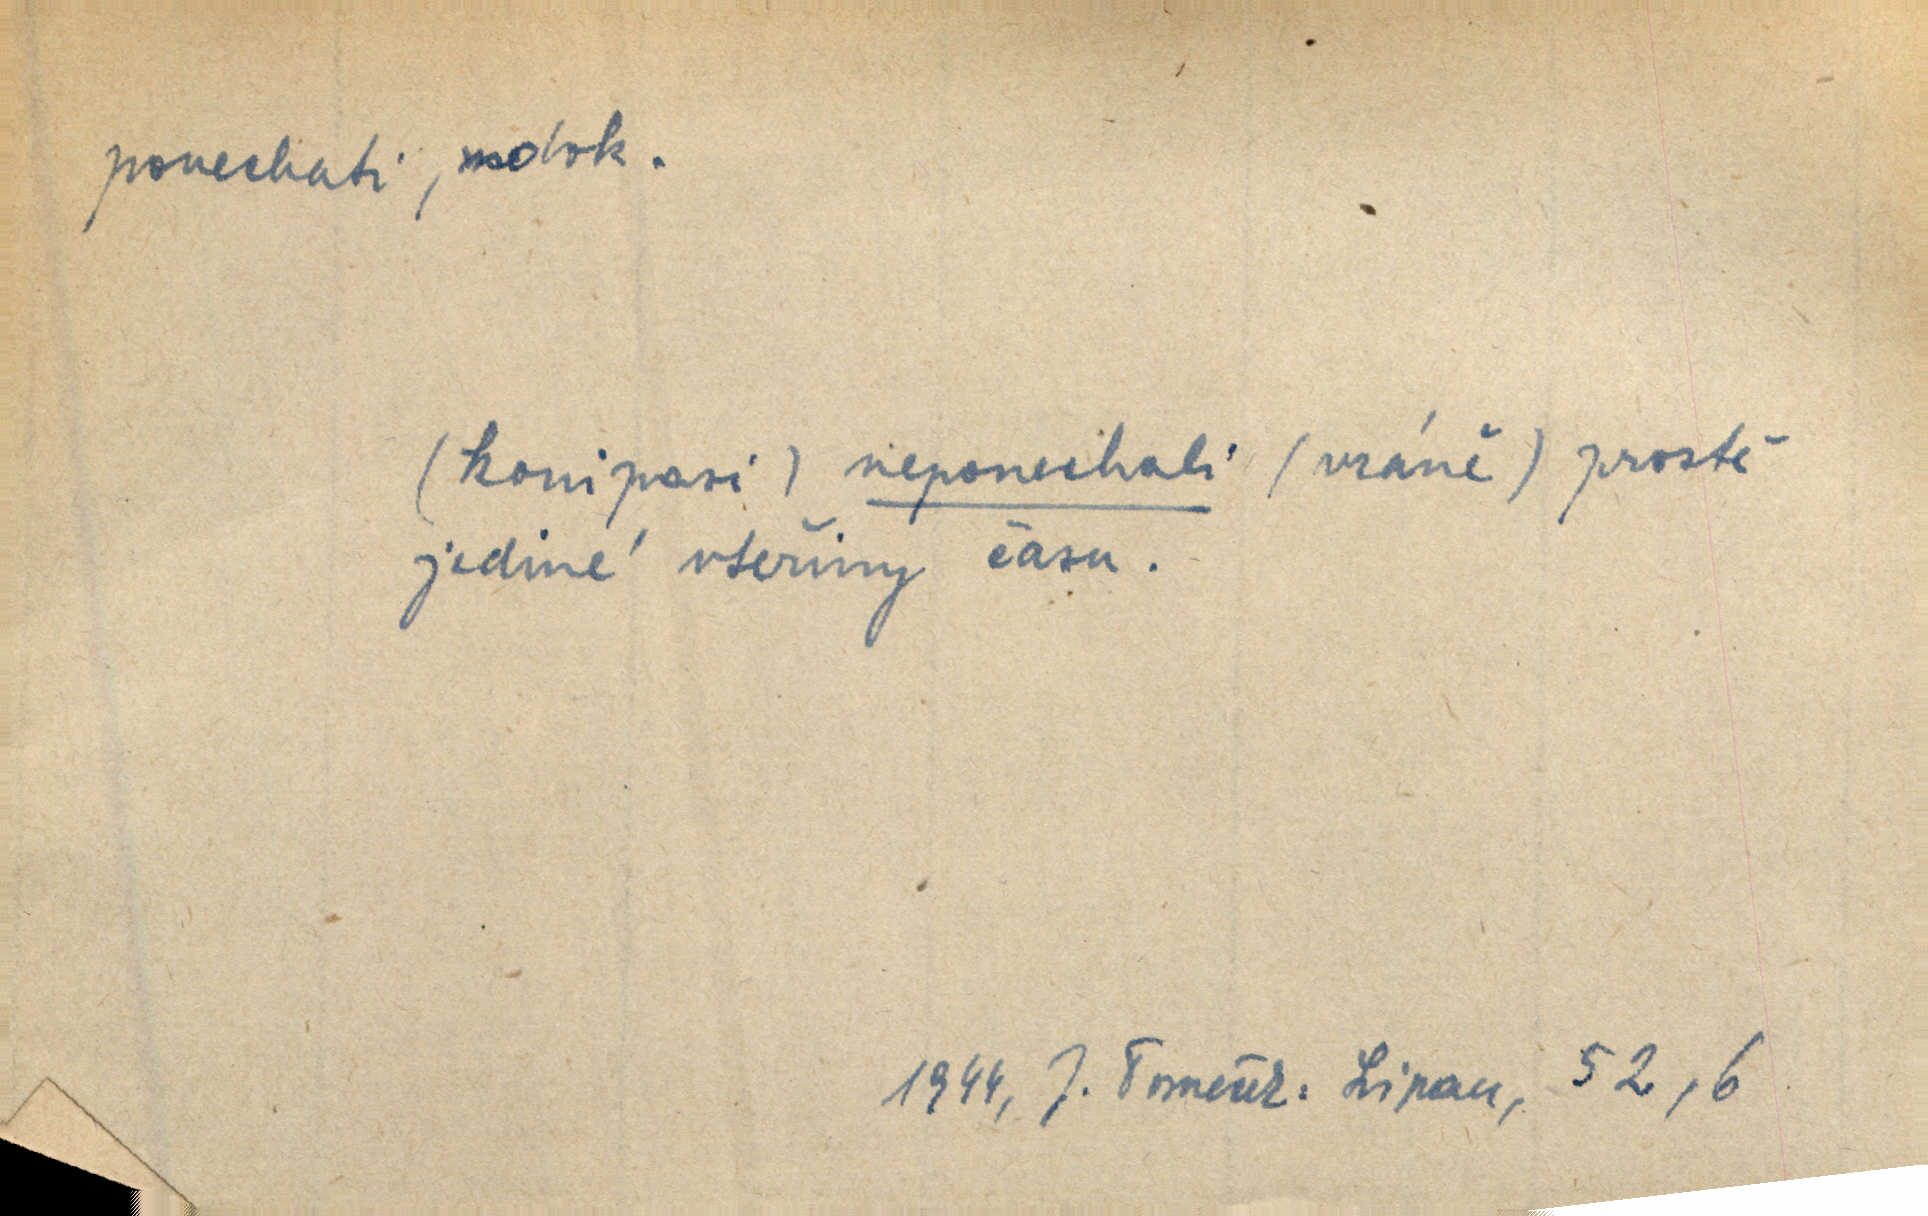 ponechati, dok.
(konipasi) neponechali (vráně) prostě
jediné vteřiny času.
1944, J. Tomeček: Lipau, 52, 6